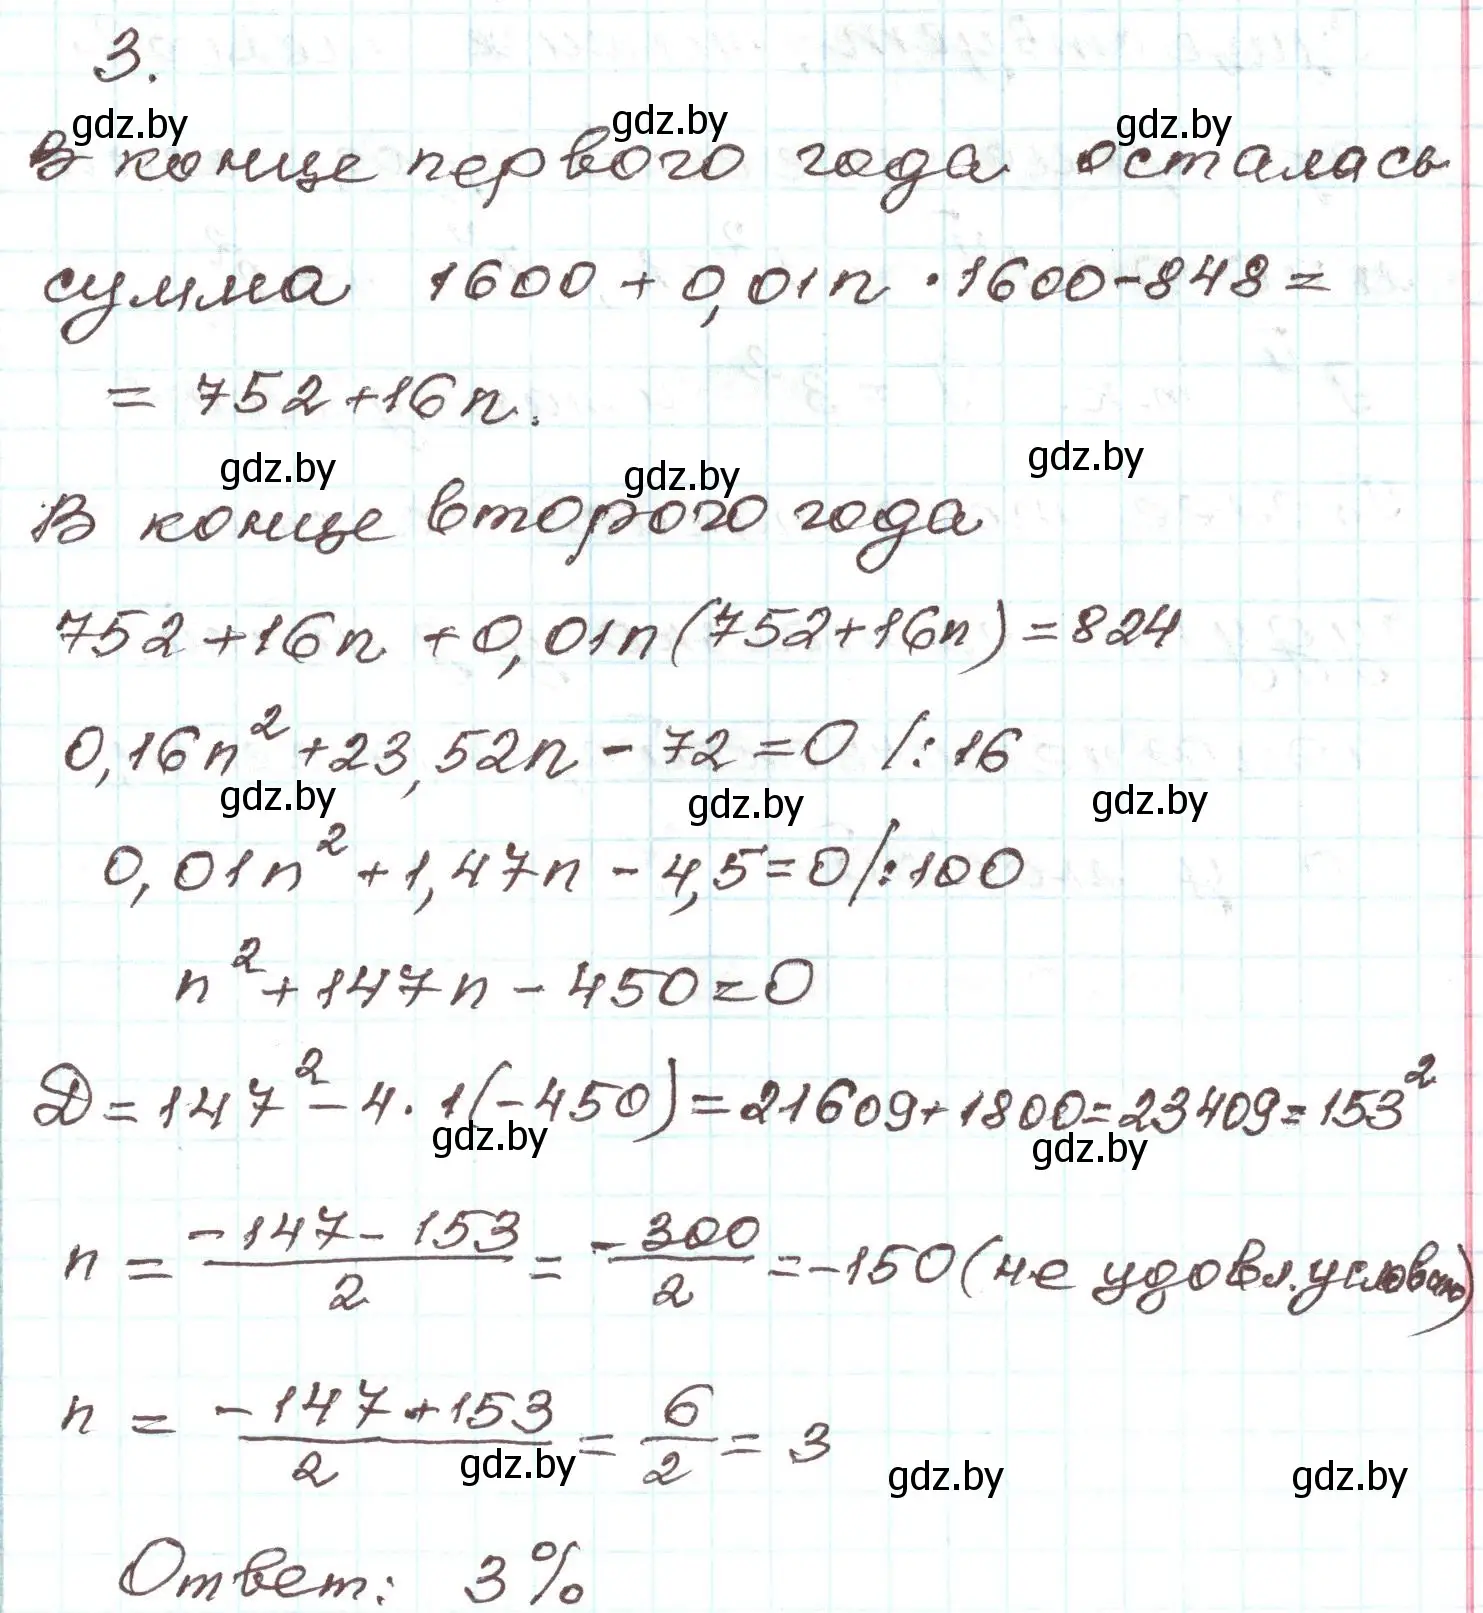 3.
gdz.by gdz.by gdz.by
В конце первого года осталась
сумма 1600 + 0,01n · 1600 - 848 =
= 752 + 16n.
gdz.by gdz.by gdz.by
В конце второго года
752 + 16n + 0,01n(752 + 16n) = 824
0,16n² + 23,52n - 72 = 0 /: 16
gdz.by gdz.by gdz.by
0,01n² + 1,47n - 4,5 = 0 /: 100
n² + 147n - 450 = 0
Д = 147² - 4 · 1(-450) = 21609 + 1800 = 23409 = 153²
gdz.by gdz.by
n = (-147 - 153)/2 = -300/2 = -150 (не удовл. условию)
n = (-147 + 153)/2 = 6/2 = 3
gdz.by gdz.by gdz.by
Ответ: 3%